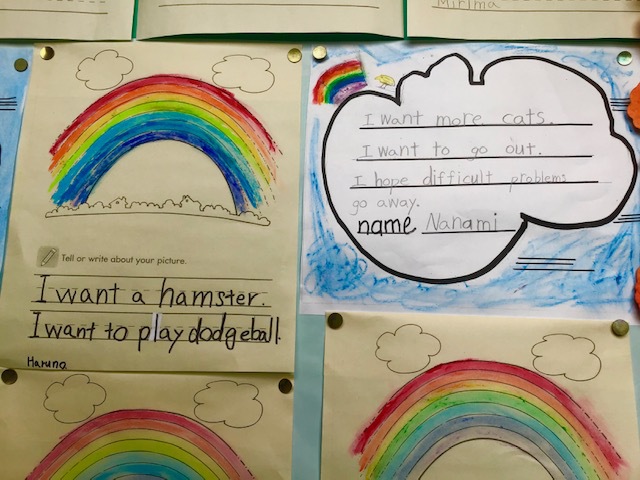 Mirima
Tell or write about your picture.
I want a hamster.
I want to play dodgeball.
Haruna
I want more cats.
I want to go out.
I hope difficult problems
go away.
name Nanami